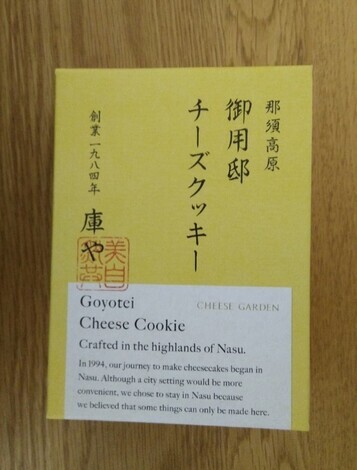 那須高原
御用邸
チーズクッキー
創業一九八四年
庫や
Goyotei
Cheese Cookie
CHEESE GARDEN
Crafted in the highlands of Nasu.
In 1994, our journey to make cheesecakes began in
Nasu. Although a city setting would be more
convenient, we chose to stay in Nasu because
we believed that some things can only be made here.